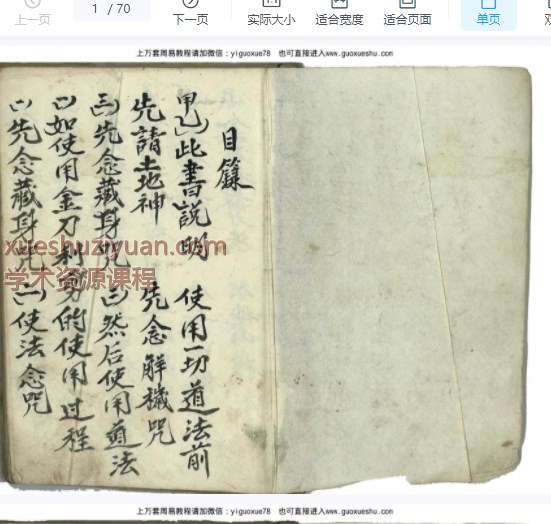 上一页
1 / 70
下一页
实际大小
适合宽度
适合页面
单页
上万套周易教程请加微信：yiguoxue78 也可直接进入www.guoxueshu.com
目錄
甲乙)此書説明 使用一切道法前
先請土地神 先念解穢咒
三)先念藏身咒 四)然后使用道法
(一)如使用金刀利剪的使用过程
(一)先念藏身咒 (二)使法念咒
xueshuziyuan.com
学术资源课程
上万套周易教程请加微信：yiguoxue78 也可直接进入www.guoxueshu.com